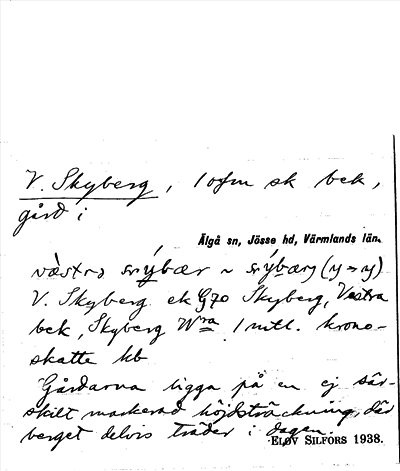 V. Skyberg, 1 ofm sk bek,
gård i
Älgå sn, Jösse hd, Värmlands län.
västra
V. Skyberg ek G70 Skyberg, Västra
bek, Skyberg Wra 1 mtl. krono-
skatte kb
Gårdarna ligga på en ej sär-
skilt markerad höjdsträckning, där
berget delvis träder i dagen.
ELOV SILFORS 1938.